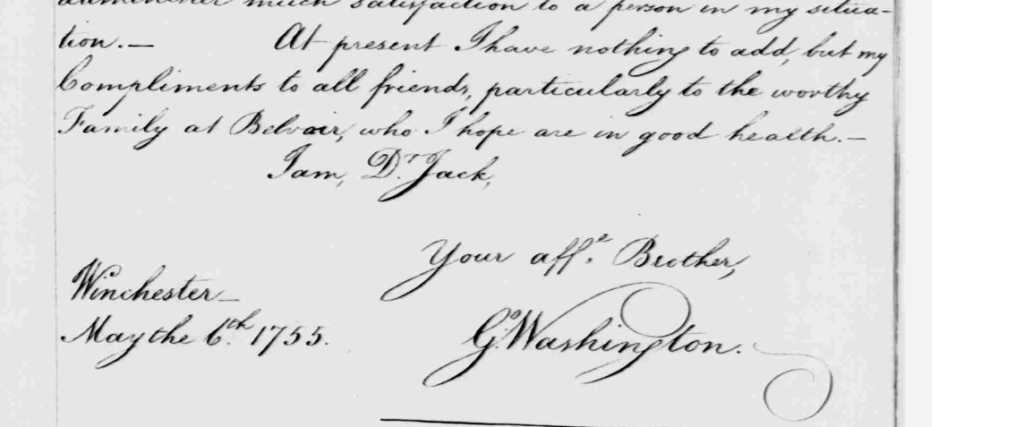 administer much satisfaction to a person in my situa-
tion.— At present I have nothing to add, but my
Compliments to all friends, particularly to the worthy
Family at Belvoir, who I hope are in good health.—
I am, Dr. Jack,
Your affe. Brother,
Winchester—
May the 6th. 1755.
Go Washington.